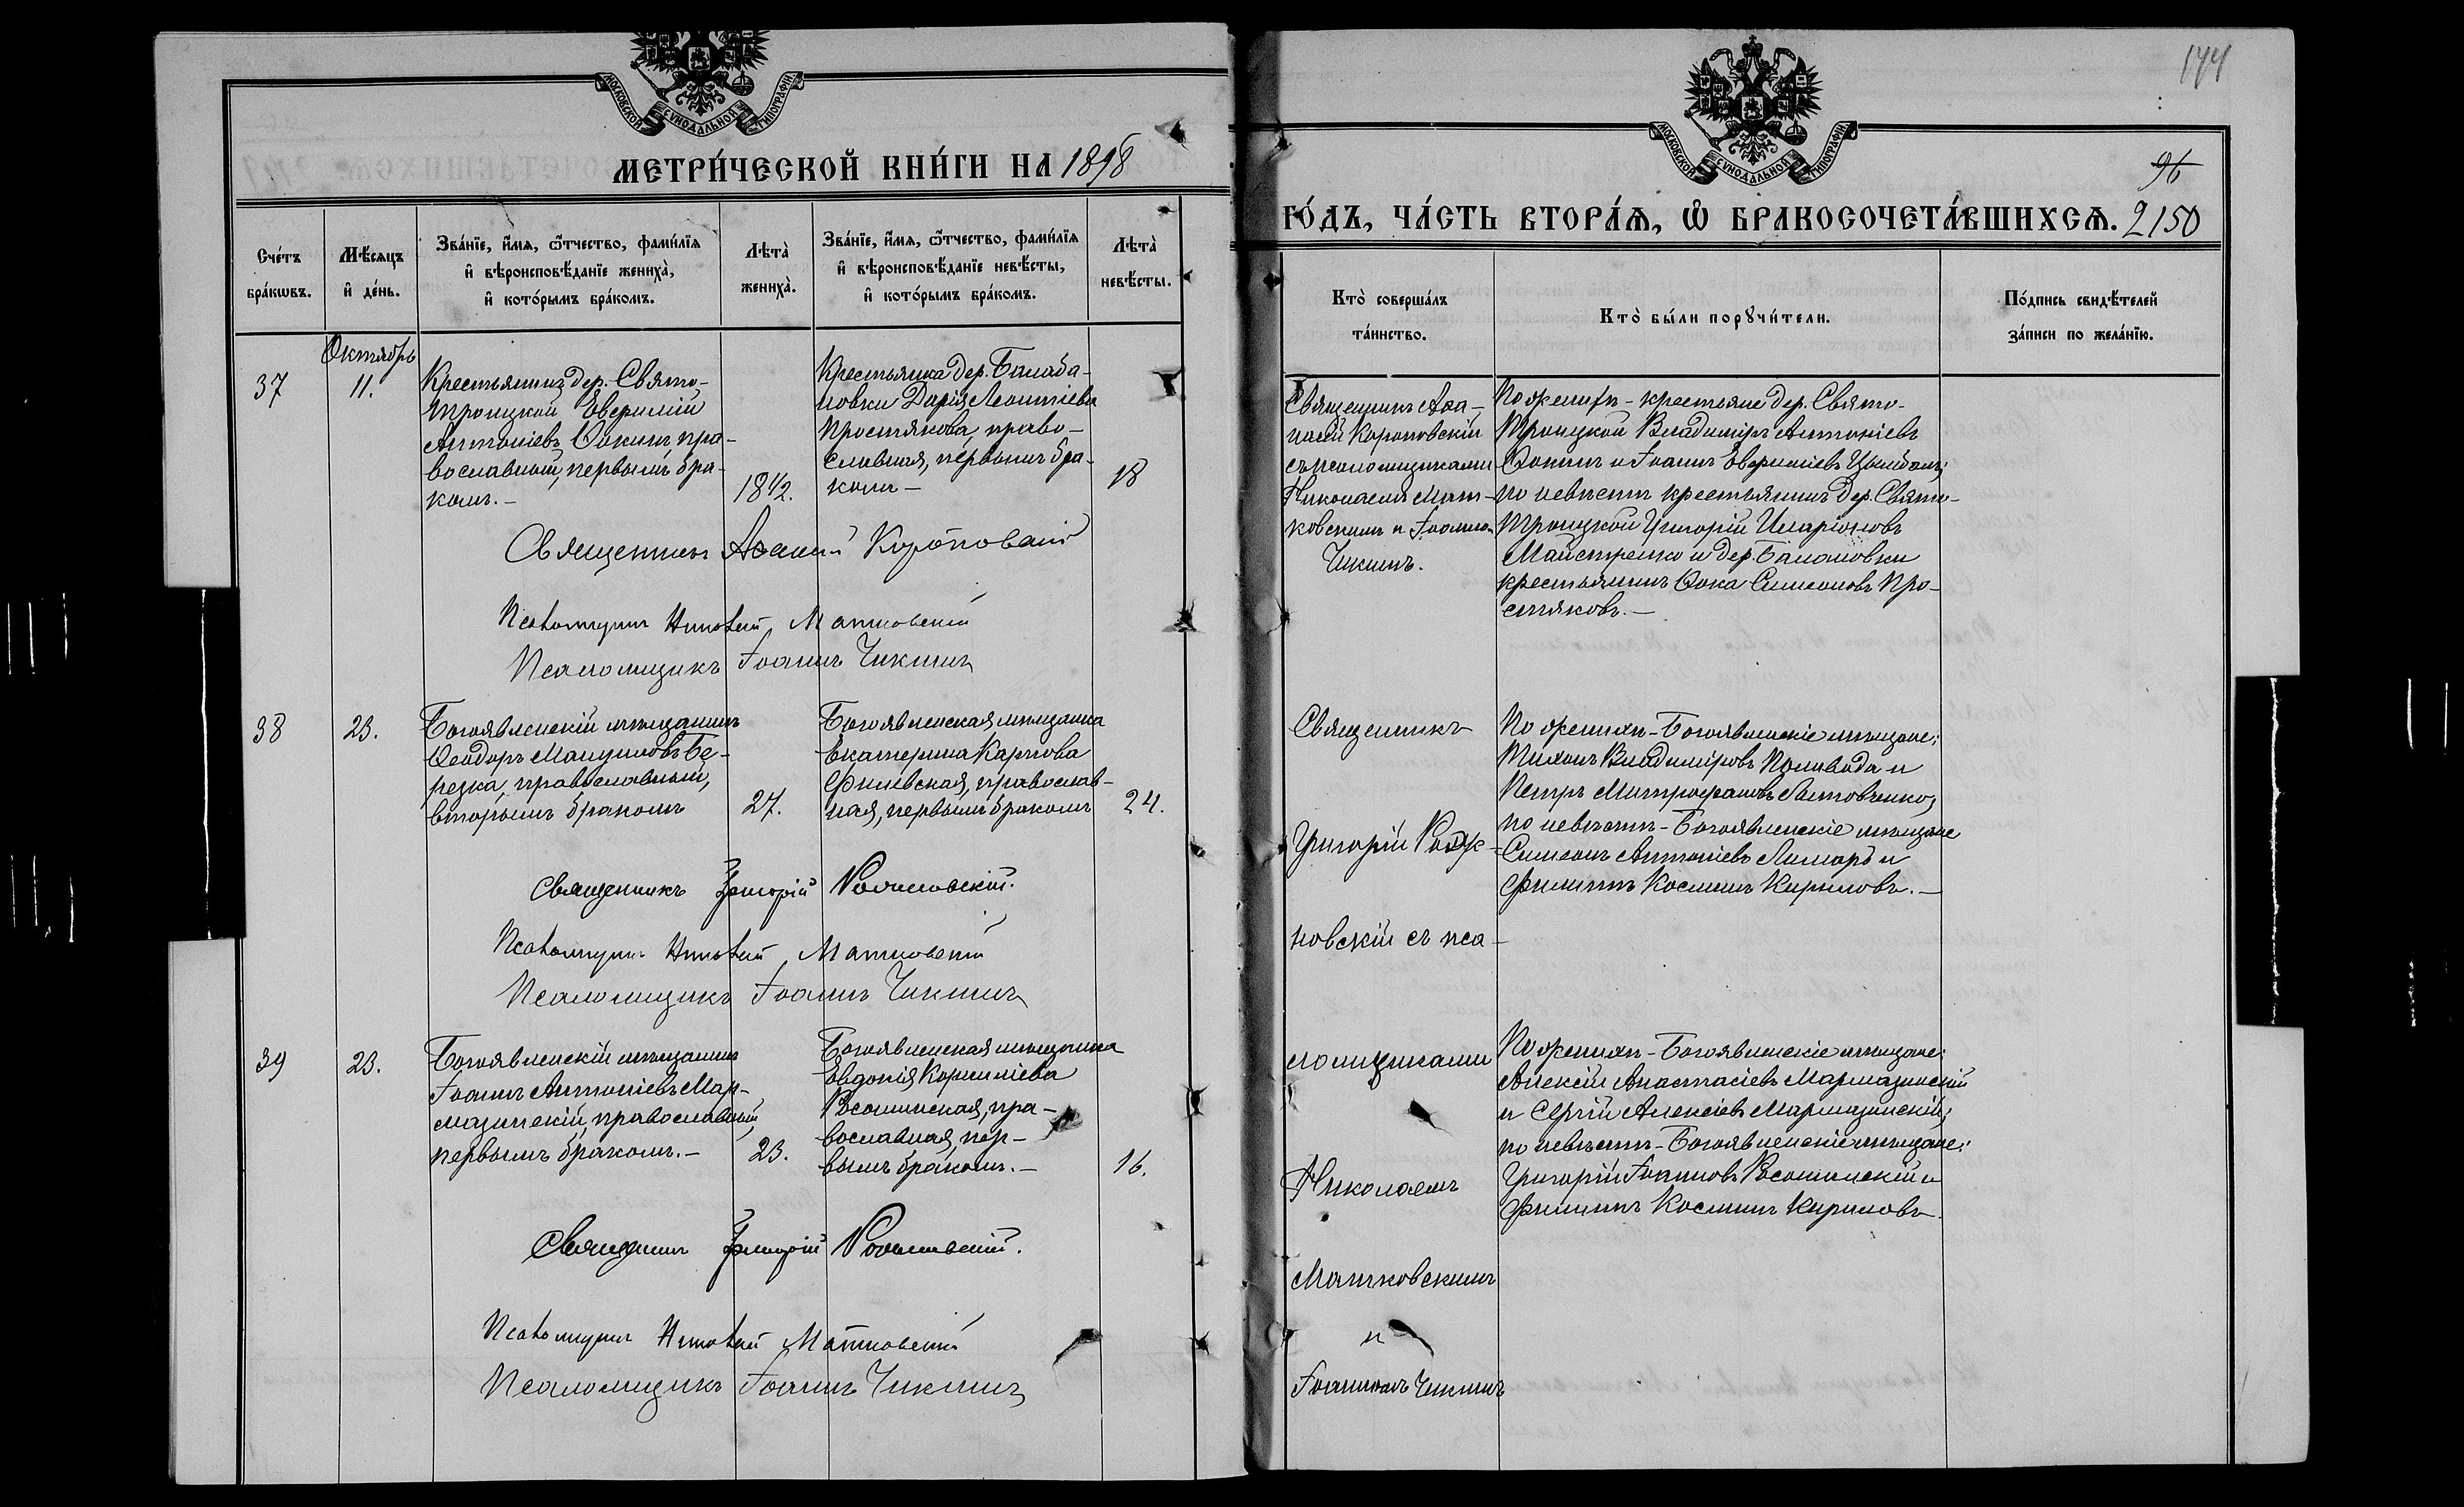 МОСКОВСКОЙ СѴНОДАЛЬНОЙ ТИПОГРАФІИ
МЕТРИ́ЧЕСКОЙ КНИ́ГИ НА 1898
Сче́тъ бра́кωвъ.
Мѣ́сяцъ и҆ де́нь.
Зва́нїе, и҆́мѧ, ѻ҆́тчество, фами́лїѧ и҆ вѣроисповѣ́данїе жениха̀, и҆ кото́рымъ бра́комъ.
Лѣта̀ жениха̀.
Зва́нїе, и҆́мѧ, ѻ҆́тчество, фами́лїѧ и҆ вѣроисповѣ́данїе невѣ́сты, и҆ кото́рымъ бра́комъ.
Лѣта̀ невѣ́сты.
Октябрь
37
11.
Крестьянинъ дер. Свято-
Троицкой Евфимій
Антоніевъ Ѳокинъ, пра-
вославный, первымъ бра-
комъ.–
18 1/2.
Крестьянка дер. Балаба-
новки Дарія Леонтіева
Простякова, право-
славная, первымъ бра-
комъ –
18
Священникъ Коропов
Псаломщикъ Николай Матковскій
Псаломщикъ Іоаннъ Чикинъ
38
23.
Богоявленскій мѣщанинъ
Ѳеодоръ Мануиловъ Бе-
резка, православный,
вторымъ бракомъ
27.
Богоявленская мѣщанка
Екатерина Карпова
православ-
ная, первымъ бракомъ
24.
Священникъ Григорій
Псаломщикъ Николай Матковскій
Псаломщикъ Іоаннъ Чикинъ
39
23.
Богоявленскій мѣщанинъ
Іоаннъ Антоніевъ Мар-
мазинскій, православный,
первымъ бракомъ.–
23.
Богоявленская мѣщанка
Евдокія Корниліева
Росошинская, пра-
вославная, пер-
вымъ бракомъ.–
16.
Священникъ Григорій
Псаломщикъ Николай Матковскій
Псаломщикъ Іоаннъ Чикинъ
144
МОСКОВСКОЙ СѴНОДАЛЬНОЙ ТИПОГРАФІИ
96
ГО́ДЪ, ЧА́СТЬ ВТОРА́Ѧ, Ѡ҆ БРАКОСОЧЕТА́ВШИХСѦ. 2150
Кто̀ соверша́лъ та́инство.
Кто̀ бы́ли порꙋчи́тели.
По́дпись свидѣ́телей за́писи по жела́нїю.
Священникъ
Короповскій
съ псаломщиками
Николаемъ Мат-
ковскимъ и Іоанно
Чикинъ.
По женихѣ – крестьяне дер. Свято-
Троицкой Владиміръ Антоніевъ
Ѳокинъ и Іоаннъ Евфиміевъ
по невѣстѣ крестьянинъ дер. Свято-
Троицкой Григорій Иларіоновъ
Майстренко и дер.
крестьянинъ Ѳока Симеоновъ Про-
стяковъ.–
Священникъ
Григорій
новскій съ пса-
ломщиками
Николаемъ
Матковскимъ
и
Іоанномъ Чикинъ
По женихѣ – Богоявленскіе мѣщане:
Тихонъ Владиміровъ Поливода и
Петръ Митрофановъ Литовченко;
по невѣстѣ – Богоявленскіе мѣщане
Симеонъ Антоніевъ Лимарь и
Филиппъ Косминъ Кириловъ.–
По женихѣ – Богоявленскіе мѣщане:
Алексій Анастасіевъ Мармазинскій
и Сергій Алексіевъ Мармазинскій;
по невѣстѣ – Богоявленскіе мѣщане:
Григорій Іоанновъ Росошинскій и
Филиппъ Косминъ Кириловъ